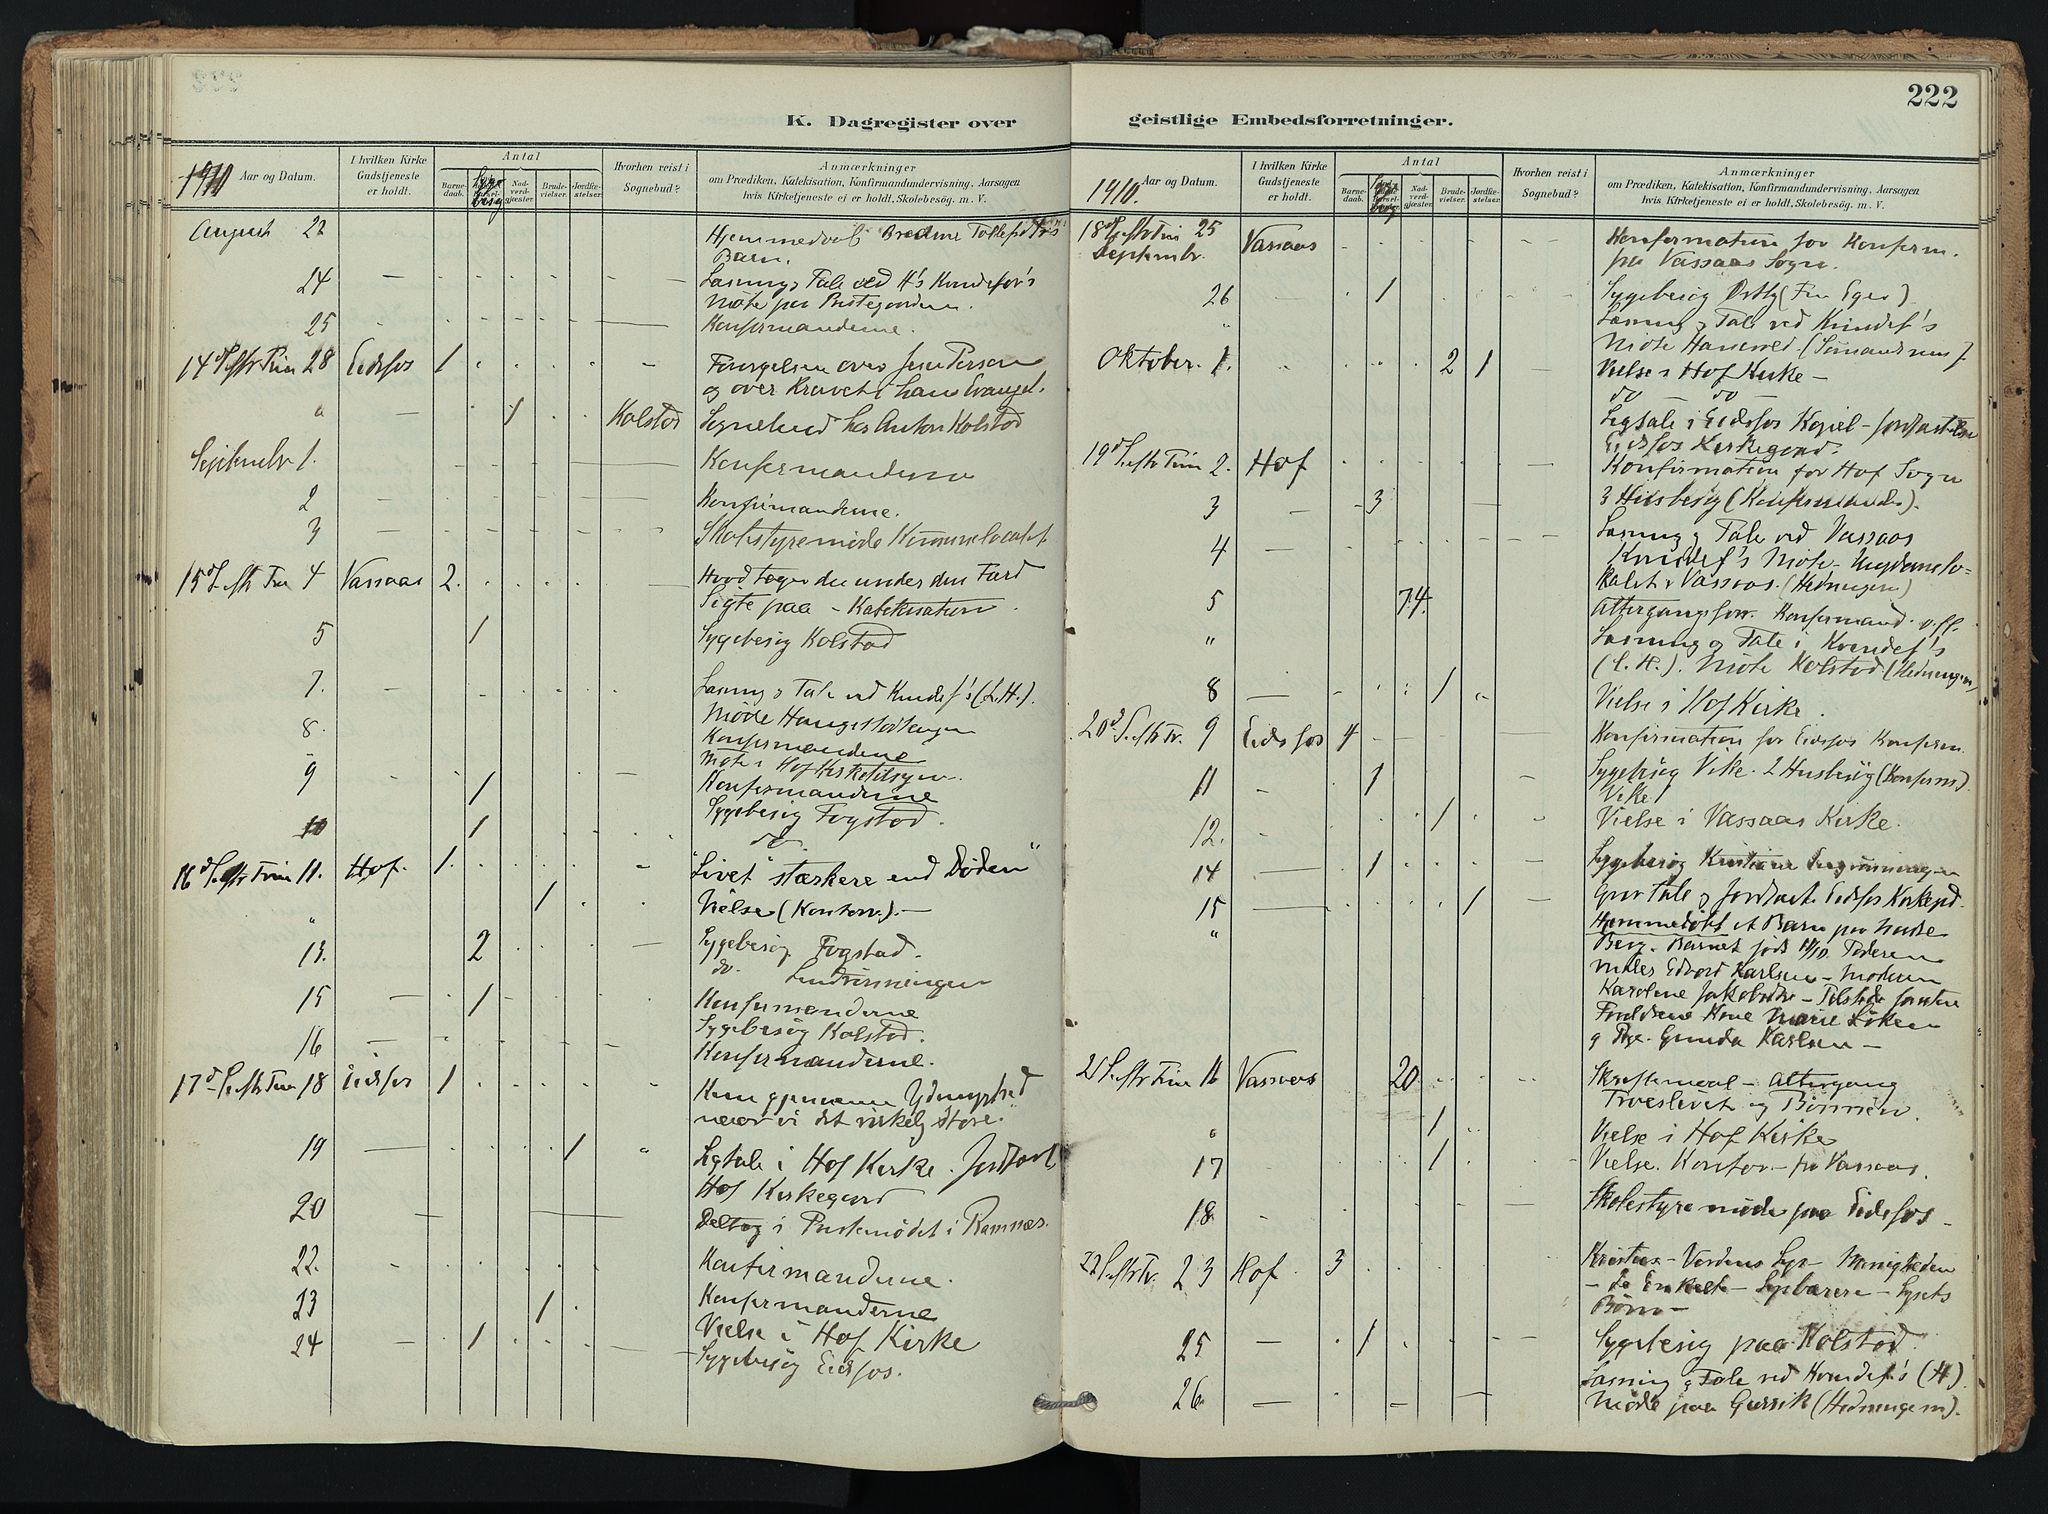 222
K. Dagregister over
1910
Aar og Datum.
I hvilken Kirke Gudstjeneste er holdt.
Antal
Barnedaab.
Sygebesøg
Nadverdgjæster.
Brudevielser.
Jordfæstelser.
Hvorhen reist i Sognebud?
Anmærkninger
om Prædiken, Katekisation, Konfirmandundervisning, Aarsagen
hvis Kirketjeneste ei er holdt, Skolebesøg. m. V.
August 22 Hjemmedøbt
Barn.
24 Læsning & Tale ved K's Kvindefor's
Møte paa Prestegaarden.
25 Konfirmanderne.
14d S. eftr Trin 28 Eidsfos 1
og over Kravet i hans Evangel.
" 1 Kolstad Sognebud hos Anton Kolstad
September 1. Konfirmanderne
2 Konfirmanderne.
3 Skolestyremøde Kommunelocalet
15d S. eftr Trin 4 Vassaas 2. Hvad tager du under din Færd
Sigte paa - Katekisation.
5 1 Sygebesøg Kolstad
7. Læsning & Tale ved Kvindef's (L.H.).
Møde Haugestadtangen
8. Konfirmanderne
Møte i Hof Kirketilsyn.
9 1 Konfirmanderne
Sygebesøg Fogstad.
10 1 do.
16d S. eftr Trin 11. Hof. 1. "Livet" stærkere end Døden"
" 1 Vielse (Kontoret). —
13. 2 Sygebesøg Fogstad.
do. Sundrønningen
15 — 1 Konfirmanderne
Sygebesøg Kolstad.
16 — Konfirmanderne.
17d S. eftr Trin 18 Eidsfos 1 Kun gjennem Ydmyghed
naar vi det virkelig Store."
19 — 1 " Ligtale i Hof Kirke. Jordfæst
Hof Kirkegaard
20 Deltog i Prestemødet i Ramnæs.
22. Konfirmanderne.
23 1 Konfirmanderne
Vielse i Hof Kirke
24 — 1 Sygebesøg Eidsfos.
geistlige Embedsforretninger.
1910.
Aar og Datum.
I hvilken Kirke Gudstjeneste er holdt.
Antal
Barnedaab.
Sygebesøg
Nadverdgjæster.
Brudevielser.
Jordfæstelser.
Hvorhen reist i Sognebud?
Anmærkninger
om Prædiken, Katekisation, Konfirmandundervisning, Aarsagen
hvis Kirketjeneste ei er holdt, Skolebesøg. m. V.
18d S. eftr Trin 25 Vassaas Konfirmation for Konfirm.
Septembr. paa Vassaas Sogn.
26 1 Sygebesøg Østby (Fru Eger)
" Læsning & Tale ved Kvindef's
Møte Hanevold (Sømandsmis).
Oktober. 1. 2 1 Vielse i Hof Kirke —
do — do —
Ligtale i Eidsfos Kapel - Jordfæstelse
Eidsfos Kirkegaard.
19d S. eftr Trin 2. Hof Konfirmation for Hof Sogn
3 3 3 Husbesøg (Konfirmander).
4 Læsning & Tale ved Vassaas
Kvindef's Møte - Ungdomslo-
kalet i Vassaas. (Hedningem)
5 74 Altergangsforr. Konfirmand. o.fl.
" Læsning og Tale i Kvindef's
(L.H.). Møte Kolstad (Hedningem)
8 — 1 " Vielse i Hof Kirke.
20d S. eftr Tr. 9 Eidsfos 4 Konfirmation for Eidsfos Konfirm.
11 1 Sygebesøg Vike. 2 Husbesøg (Konfirm).
Vike
12. 1 Vielse i Vassaas Kirke.
14 — 1 Sygebesøg Kristiane
15 — 1 Grav Tale & Jordfæst. Eidsfos Kirkegd.
" Hjemmedøbt et Barn paa
Berg. Barnet født Faderen
Edvard Karlsen - Moderen
Karoline - Tilstede foruten
Forældrene Kone Marie Løken
og Pige. Gunda Karlsen —
21 S. eftr Trin 16 Vassaas 20 Skriftemaal - Altergang
Troeslivet og Bønnen.
" 1 Vielse i Hof Kirke
17 1 Vielse. Kontor. — fra Vassaas.
18. Skolestyremøde paa Eidsfos —
22 S. eftr Tr. 23 Hof 3 Kristus - Verdens Lys - Menigheden
— Enkelte - Lysbærere - Lysets
Børn —
25 — 1 Sygebesøg paa Kolstad.
26 — Læsning & Tale ved Kvindef's (H)
Møde paa (Hedningem).